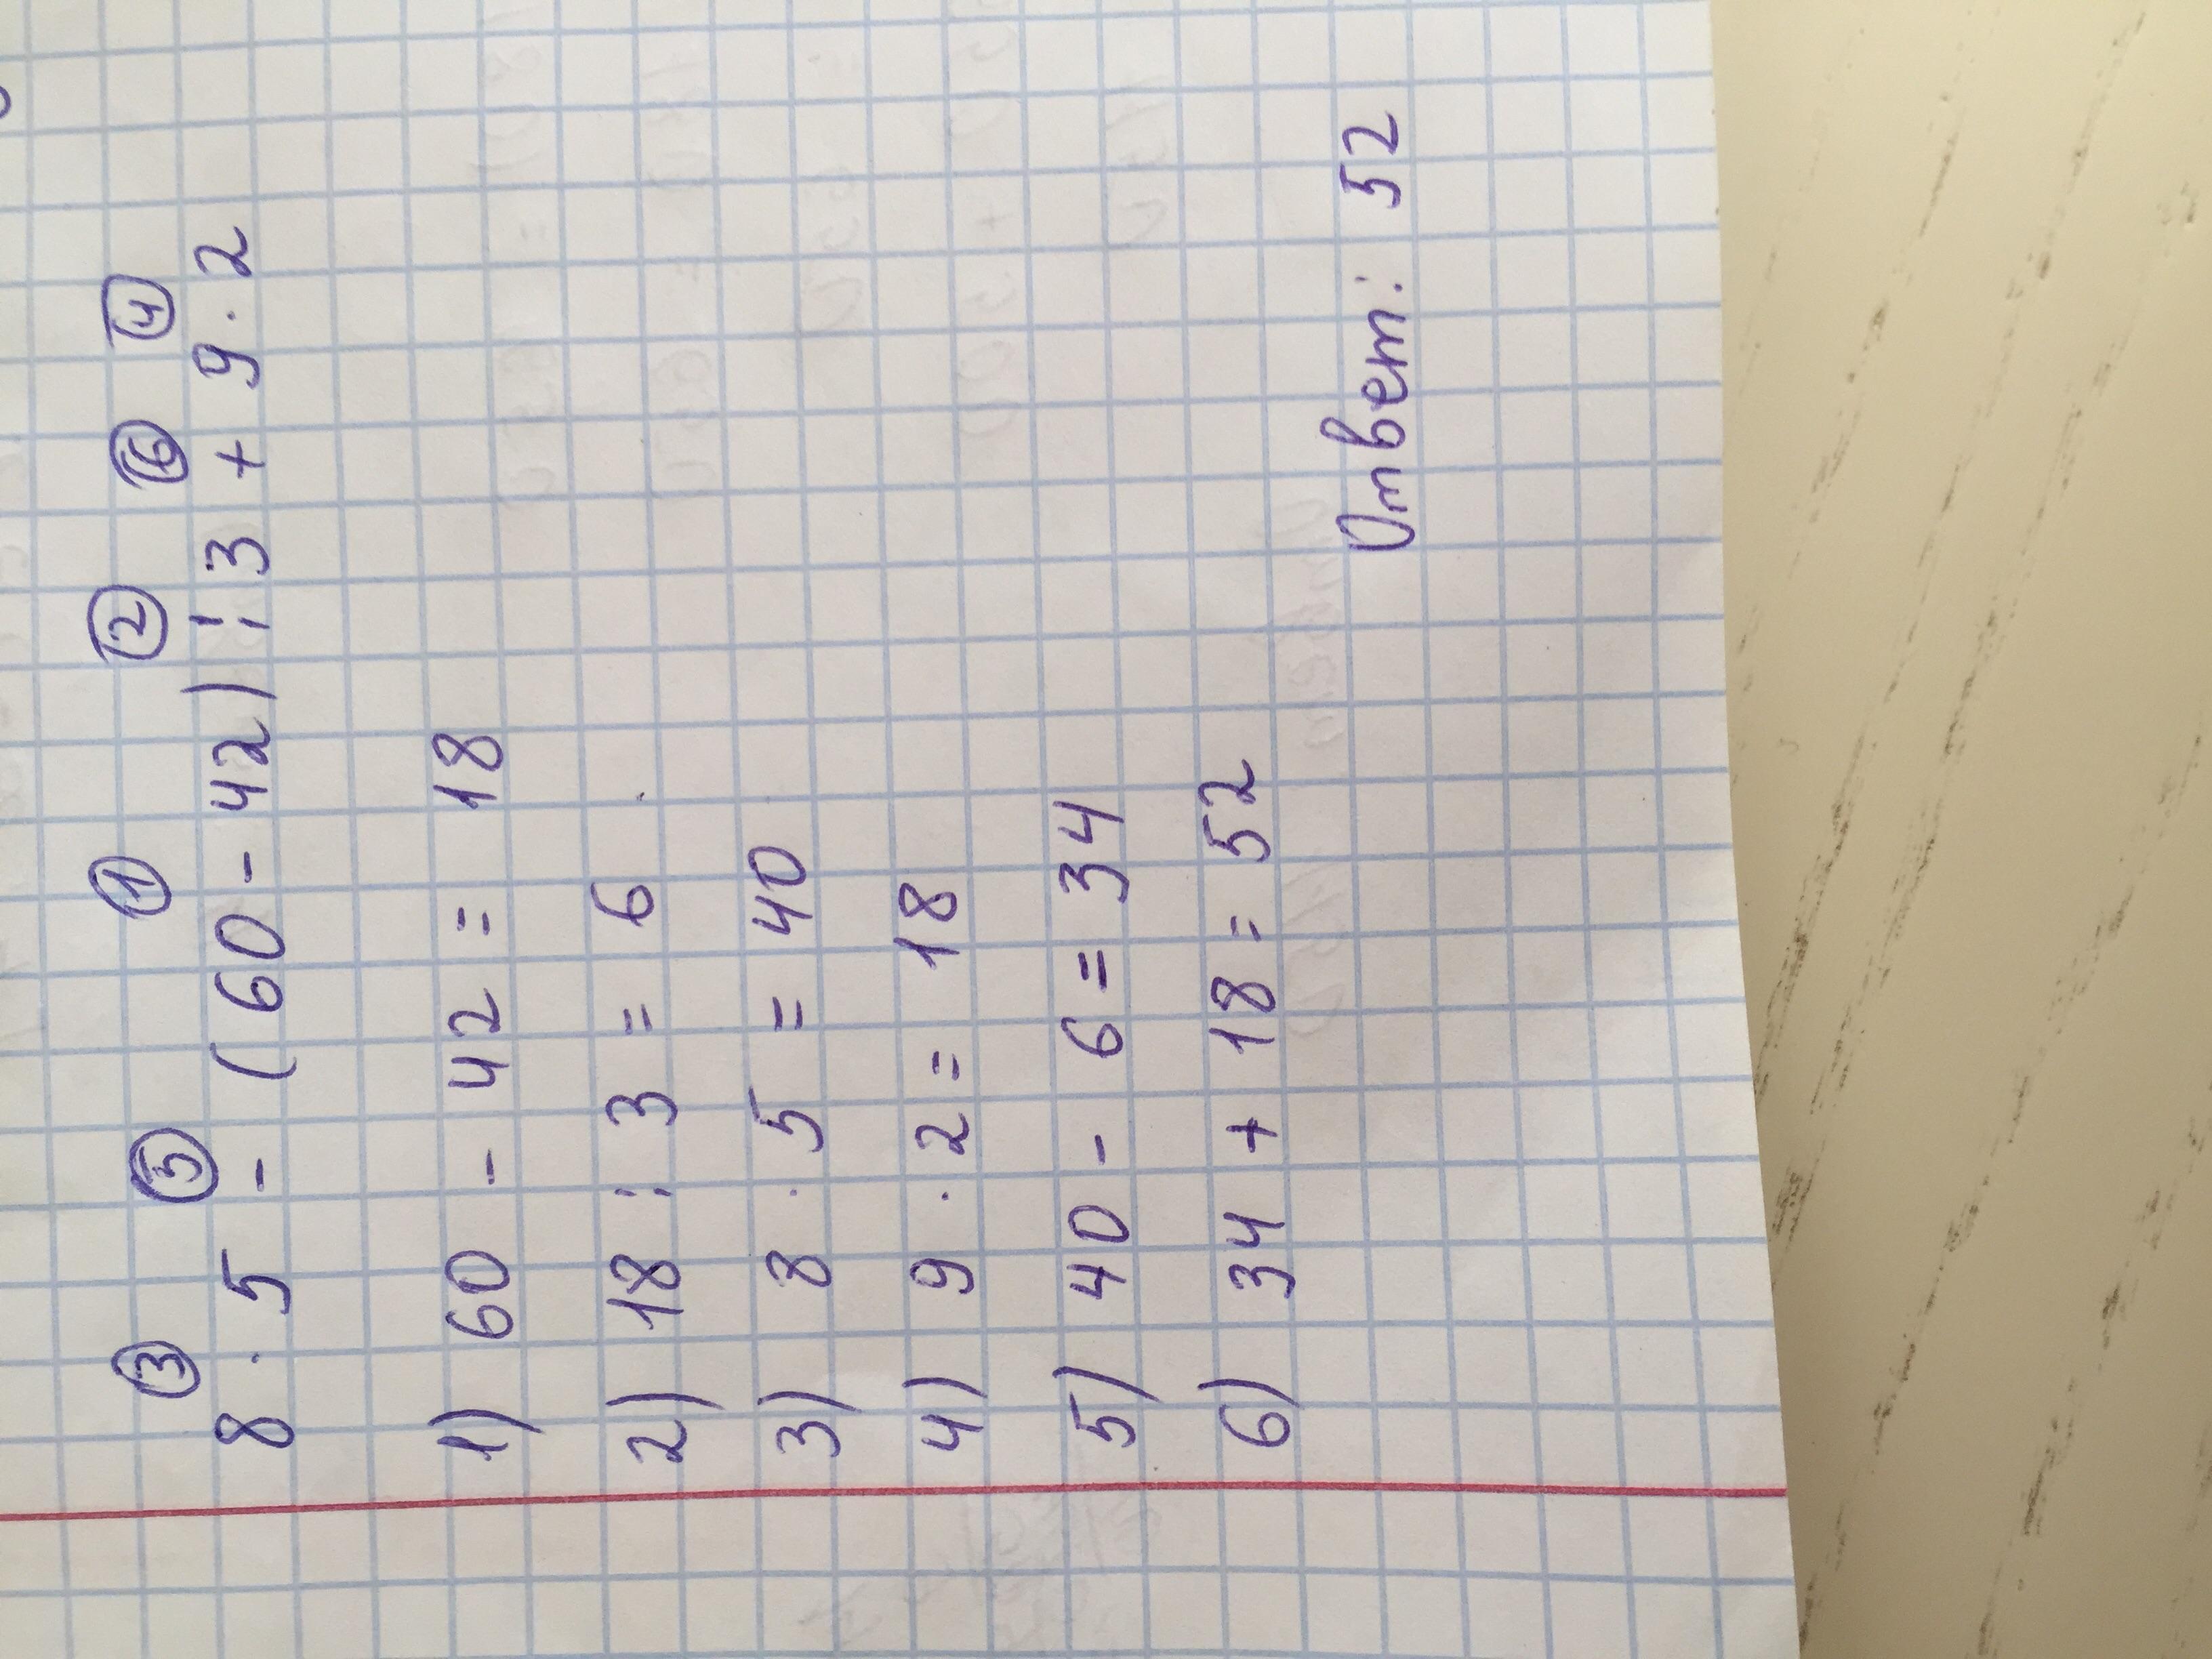 ③ ⑤ ① ② ⑥ ④
8 · 5 - (60 - 42) : 3 + 9 · 2
1) 60 - 42 = 18
2) 18 : 3 = 6
3) 8 · 5 = 40
4) 9 · 2 = 18
5) 40 - 6 = 34
6) 34 + 18 = 52
Ответ: 52